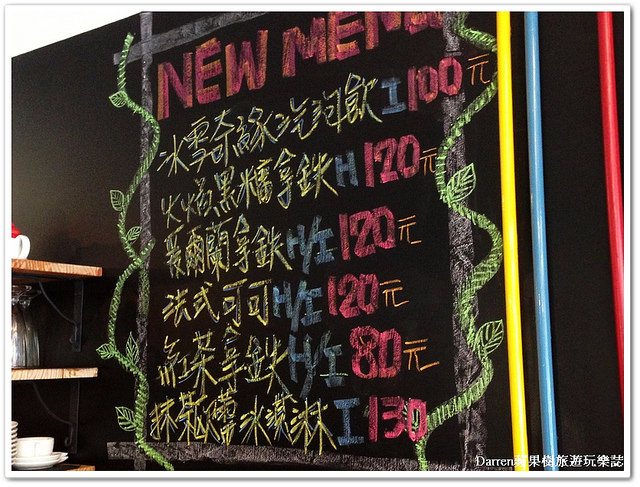 NEW MENU
冰雪奇緣冰沙飲 I 100元
火焰黑糖拿鉄 H 120元
愛爾蘭拿鉄 H/I 120元
法式可可 H/I 120元
紅茶拿鉄 H/I 80元
抹茶冰淇淋 I 130
Darren蘋果樹旅遊玩樂誌